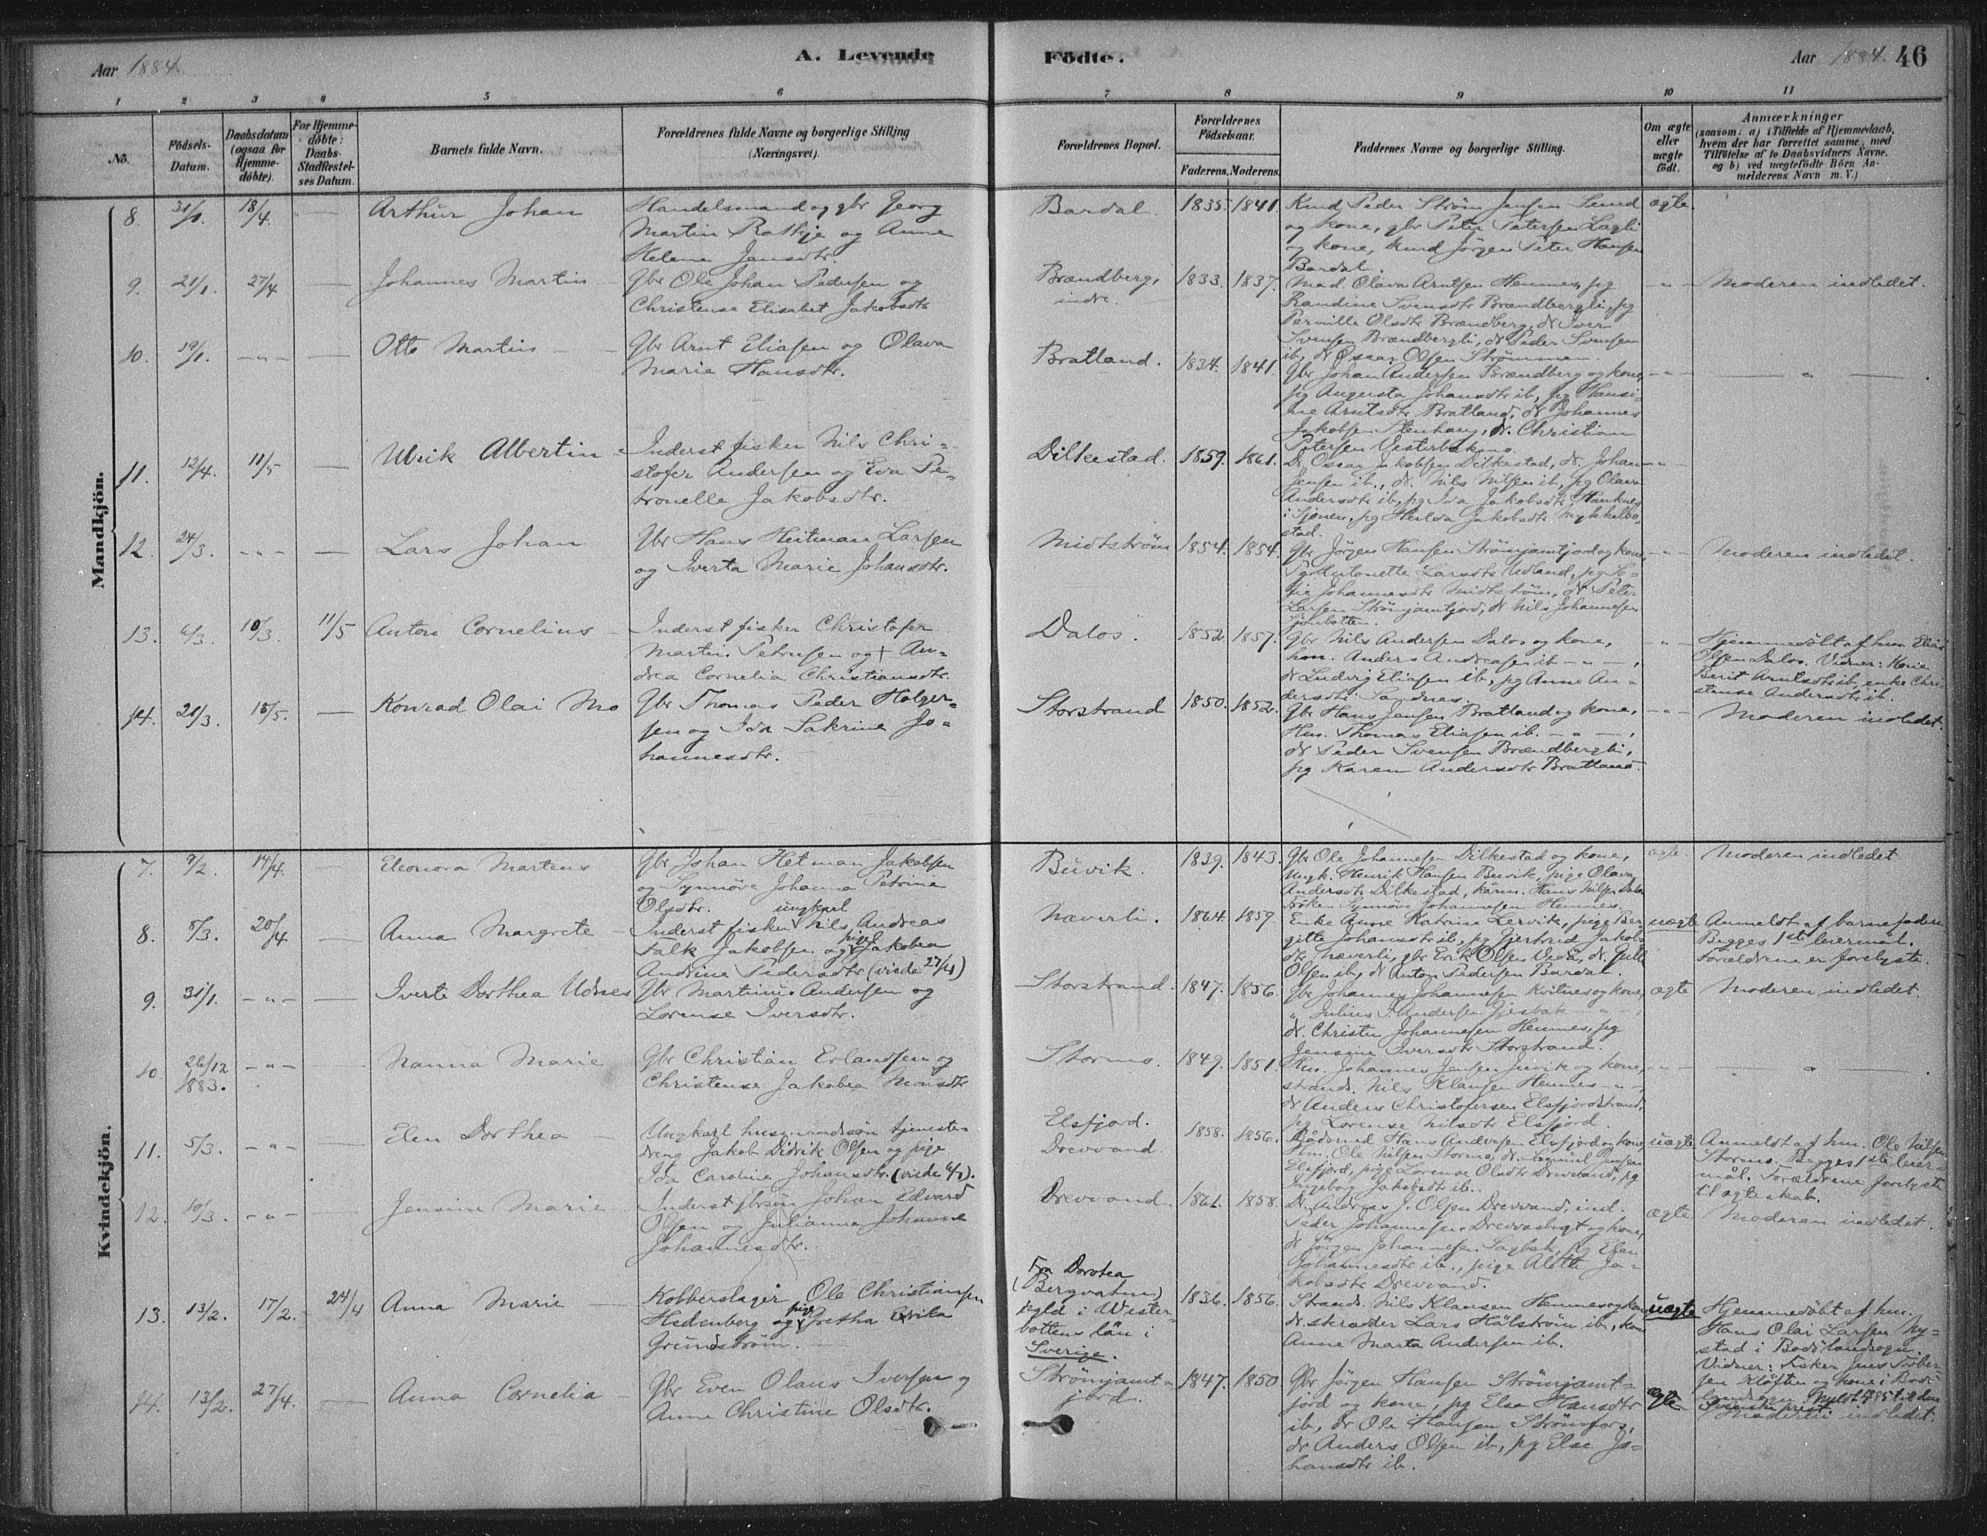 Aar 1884.
A. Levende
Födte.
Aar 1884. 46
1 2 3 4 5 6 7 8 9 10 11
No.
Födsels-Datum.
Daabsdatum (ogsaa for Hjemme-döbte).
For Hjemme-döbte: Daabs-Stadfestel-ses Datum.
Barnets fulde Navn.
Forældrenes fulde Navne og borgerlige Stilling (Næringsvei).
Forældrenes Bopæl.
Forældrenes Födselsaar.
Faderens. Moderens.
Faddernes Navne og borgerlige Stilling.
Om ægte eller uægte födt.
Anmærkninger
(saasom: a) i Tilfælde af Hjemmedaab,
hvem der har forrettet samme, med
Tilföielse af to Daabsvidners Navne,
og b) ved uægtefödte Börn An-
melderens Navn m. V.)
Mandkjön.
8. 18/4. — Arthur Johan
Handelsmand og gbr Georg
Martin Rathje og Anne
Helene Jensdtr.
Bardal. 1835. 1841.
Knd Peder Ström Jensen Lund
og kone, gbr Peter Petersen Lægli
og kone, Knd Jörgen Peter Hansen
Bardal.
ægte.
9. 21/1. 27/4 — Johannes Martin
Gbr Ole Johan Pedersen og
Christense Elisabet Jakobsdtr
Brændberg, indre. 1833. 1837.
Mad. Olava Arntsen Hemnes, pg
Randine Svensdtr Brændbergli, pg
Pernille Olsdtr Brændberg, dr Iver
Svensen Brændbergli, dr Peder Svensen
ib, dr Oscar Olsen Strömmen.
-"- Moderen indledet.
10. 19/1. -"- — Otto Martin —
Gbr Arnt Eliasen og Olava
Marie Hansdtr.
Bratland. 1834. 1841.
Gbr Johan Andersen Brændberg og kone,
pg Augusta Johansdtr ib, pg Hansi-
ne Arntsdtr Bratland, dr Johannes
Jakobsen Stenhaug, dr. Christian
Petersen Vesterbækmo.
-"- — " —
11. 12/4. 11/5 — Ulrik Albertin
Inderst fisker Nils Chri-
stofer Andersen og Eva Pe-
tronelle Jakobsdtr.
Dilkestad. 1859. 1861.
Dr. Oscar Jakobsen Dilkestad, dr. Johan
Jensen ib., dr. Nils Nilsen ib, pg Olava
Andersdtr ib, pg Ida Jakobsdtr
i Sjonen, pg Hilda Jakobsdtr Mykkelbo-
stad.
-"-
12. 24/3. -"- — Lars Johan
Gbr Hans Heitman Larsen
og Iverta Marie Johansdtr.
Midtström 1854. 1854.
Gbr Jörgen Hansen Strömjamtjord og kone,
Pg Antonette Larsdtr Udland, pg So-
fie Johannesdtr Midtström, dr Peter
Larsen Strömjamtjord, dr Nils Johannesen
-"- Moderen indledet.
13. 6/3. 10/3. 11/5 Anton Cornelius
Inderst fisker Christofer
Martin Petersen og + An-
drea Cornelia Christiansdtr.
Dalos. 1852 1857.
Gbr Nils Andersen Dalos og kone,
hm. Anders Andreasen ib -"-,
dr Ludvig Eliasen ib, pg Anne An-
dersdtr Sandnes.
-"- Hjemmedöbt af hm. Elias
Olsen Dalos. Vidner: Kone
Berit Arntsdtr ib, enke Chri-
stense Andersdtr ib.
14. 21/3. 15/5. — Konrad Olai Mo
Gbr Thomas Peder Holger-
sen og Ida Sakrine Jo-
hannesdtr.
Storstrand 1850. 1852.
Gbr Hans Jensen Bratland og kone,
Hm. Thomas Eliasen ib. -"-,
dr Peder Svensen Brændbergli,
pg Karen Andersdtr Bratland.
-"- Moderen indledet.
Kvindekjön.
7. 9/2. 14/4. — Eleonora Martens
Gbr Johan Hetman Jakobsen
og Synnöve Johanna Petrine
Olsdtr.
Buvik. 1839. 1843.
Gbr Ole Johannesen Dilkestad og kone,
Ungk. Henrik Hansen Buvik, pige Olava
Andersdtr Dilkestad,
Fröken Synnöve Johannesen Hemnes.
ægte Moderen indledet.
8. 8/3. 20/4 — Anna Margrete
ungkarl
Inderst fisker Nils Andreas
Falk Jakobsen og pige Jakobea
Andrine Pedersdtr (viede 27/4)
Næverli. 1864. 1859.
Enke Anne Katrine Lervik, pige Ber-
gitte Johansdtr ib, pg Gjertrud Jakobs-
dtr Næverli, gbr Erik Olsen
Olsen ib, dr Anton Pedersen Bardal.
uægte Anmeldt af barnefaderen
Begges 1ste leiermål.
Forældrene er forelyste.
9. 31/1. -"- — Iverte Dorthea Udnes
Gbr Martinus Andersen og
Lorense Iversdtr.
Storstrand. 1847. 1856.
Gbr Johannes Johannesen Kvitnes og kone,
" Julius P. Andersen Gjesbak -"-,
dr. Christen Johannesen Hemnes, pg
Jensine Iversdtr Storstrand.
ægte Moderen indledet.
10. 26/12 1883. -"- — Nanna Marie
Gbr Christian Erlandsen og
Christense Jakobea Monsdtr
Stormo. 1849. 1851.
Hm. Johannes Jensen Juvik og kone,
strands. Nils Klausen Hemnes -"-,
dr Anders Christofersen Elsfjordstrand,
pg Lorense Nilsdtr Elsfjord.
-"- — " —
11. 5/3. -"- — Elen Dorthea
Ungkarl husmandssön tjeneste-
dreng Jakob Didrik Olsen og pige
Ida Caroline Johansdtr (viede 6/7).
Elsfjord.
Drevvand. 1858. 1856.
Hans Andersen Elsfjord og kone,
Hm. Ole Nilsen Stormo, dr. Samuel Jensen
Elsfjord, pige Lorense Olsdtr Drevvand, pg
Ingebog Jakobsdtr ib.
uægte Anmeldt af hm. Ole Nilsen
Stormo. Begges 1ste leier-
mål. Forældrene forelyst
til ægteskab.
12. 10/3. -"- — Jensine Marie
Inderst gbrsön Johan Edvard
Olsen og Julianna Johanne
Johannesdtr.
Drevvand. 1861. 1858.
Dr. Andreas J. Olsen Drevvand, ind.
Peder Johannesen Drevvasbugt og kone,
dr Jörgen Johannesen Sagbak, pg Elen
Johannesdtr ib., pige Alette Ja-
kobsdtr Drevvand.
ægte Moderen indledet.
13. 13/2. 17/2. 24/4 Anna Marie —
Kobberslager Ole Christiansen
Hedenberg og pige Gretha Evika
Grundström.
Fra Dorotea
(Bergvatne)
sgld i Wester-
bottens län i
Sverige.
1836. 1856.
Strands. Nils Klausen Hemnes og kone
dr. skrædder Lars Hälström ib, kone
Anne Marta Andersen ib.
uægte Hjemmedöbt af hm.
Hans Olai Larsen Ny-
stad i Bodölandsogn
Vidner: Fisker Jens Torber-
sen Kloften og kone i Bodö
landsogn.
14. 13/2. 27/4. — Anna Cornelia
Gbr Even Olaus Iversen og
Anne Christine Olsdtr.
Strömjamt-
jord. 1847. 1850
Gbr Jörgen Hansen Strömjamt-
jord og kone, pg Else Hansdtr
ib, dr Ole Hansen Strömfors,
dr Anders Olsen ib, pg Else Jo-
hansdtr ib.
ægte Moderen indledet.